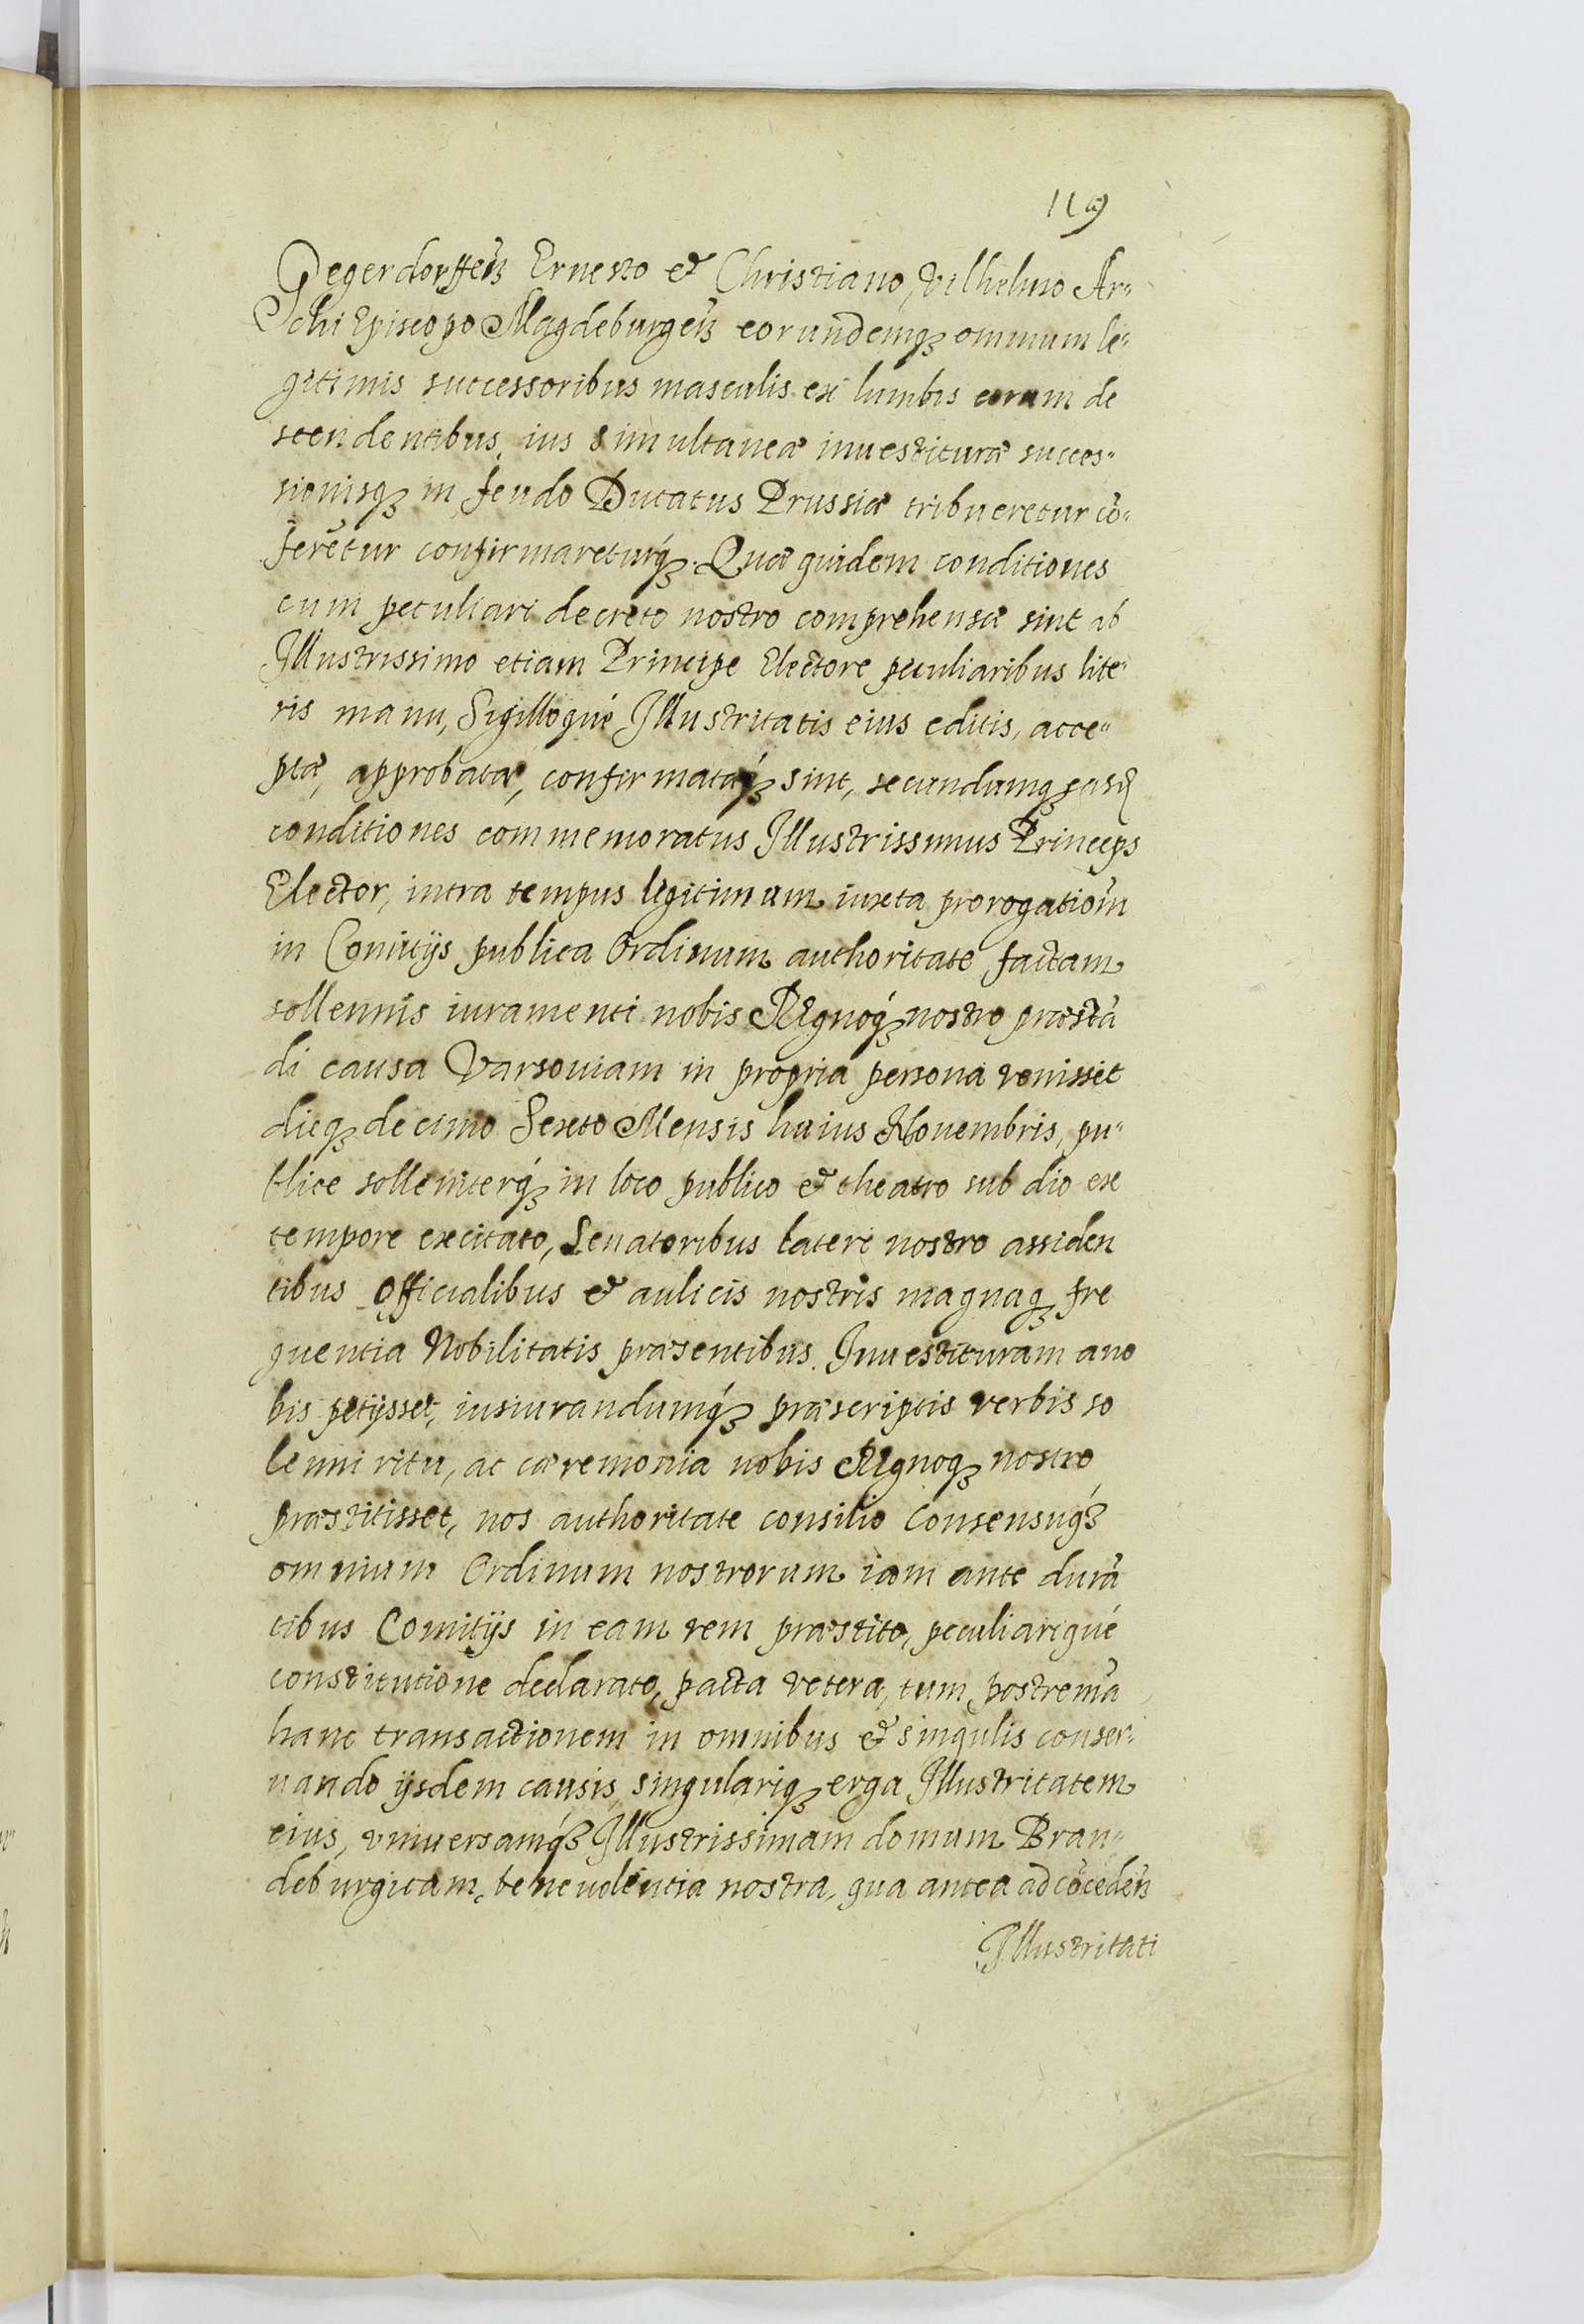 119
Gegerdorffeñ Ernesto et Christiano, Vilhelmo Ar-
chi Episcopo Magdeburgeñ eorundemqȝ omnium le-
gitimis successoribus masculis ex lumbis eorum de
scendentibus, ius simultaneæ inuestituræ succes-
sionisqȝ in feudo Ducatus Prussiæ tribueretur cō-
ferētur confirmareturqȝ. Quæ quidem conditiones
cum peculiari decreto nostro comprehensæ sint ab
Illustrissimo etiam Principe Electore peculiaribus lite-
ris manu, Sigilloqué Illustritatis eius editis, acce-
ptæ, approbatæ, confirmatæqȝ sint, secundumqȝ easd
conditiones commemoratus Illustrissimus Princeps
Elector, intra tempus legitimum iuxta prorogatiom̄
in Comitijs publica Ordinum authoritate factam
sollennis iuramenti nobis Regnoqȝ nostro præstā
di causa Varsouiam in propria persona venisset
dieqȝ decimo Sexto Mensis huius Nouembris, pu-
blice solleniterqȝ in loco publico et theatro sub dio ex
tempore excitato, Senatoribus lateri nostro assiden
tibus Officialibus et aulicis nostris magnaqȝ fre
quentia Nobilitatis præsentibus. Inuestituram ano
bis petijsset, iusiurandumqȝ præscriptis verbis so
lenni ritu, ac cæremonia nobis Regnoqȝ nostro
præstitisset, nos authoritate consilio Consensuqȝ
omnium Ordinum nostrorum iam ante durā
tibus Comitijs in eam rem præstito, peculiariqué
constitutione declarato, pacta vetera, tum postremā
hanc transactionem in omnibus et singulis conser-
uando ijsdem causis, singulariqȝ erga Illustritatem
eius, vniuersamqȝ Illustrissimam domum Bran-
deburgicam, beneuolentia nostra, qua antea ad cōcedeñ
Illustritati